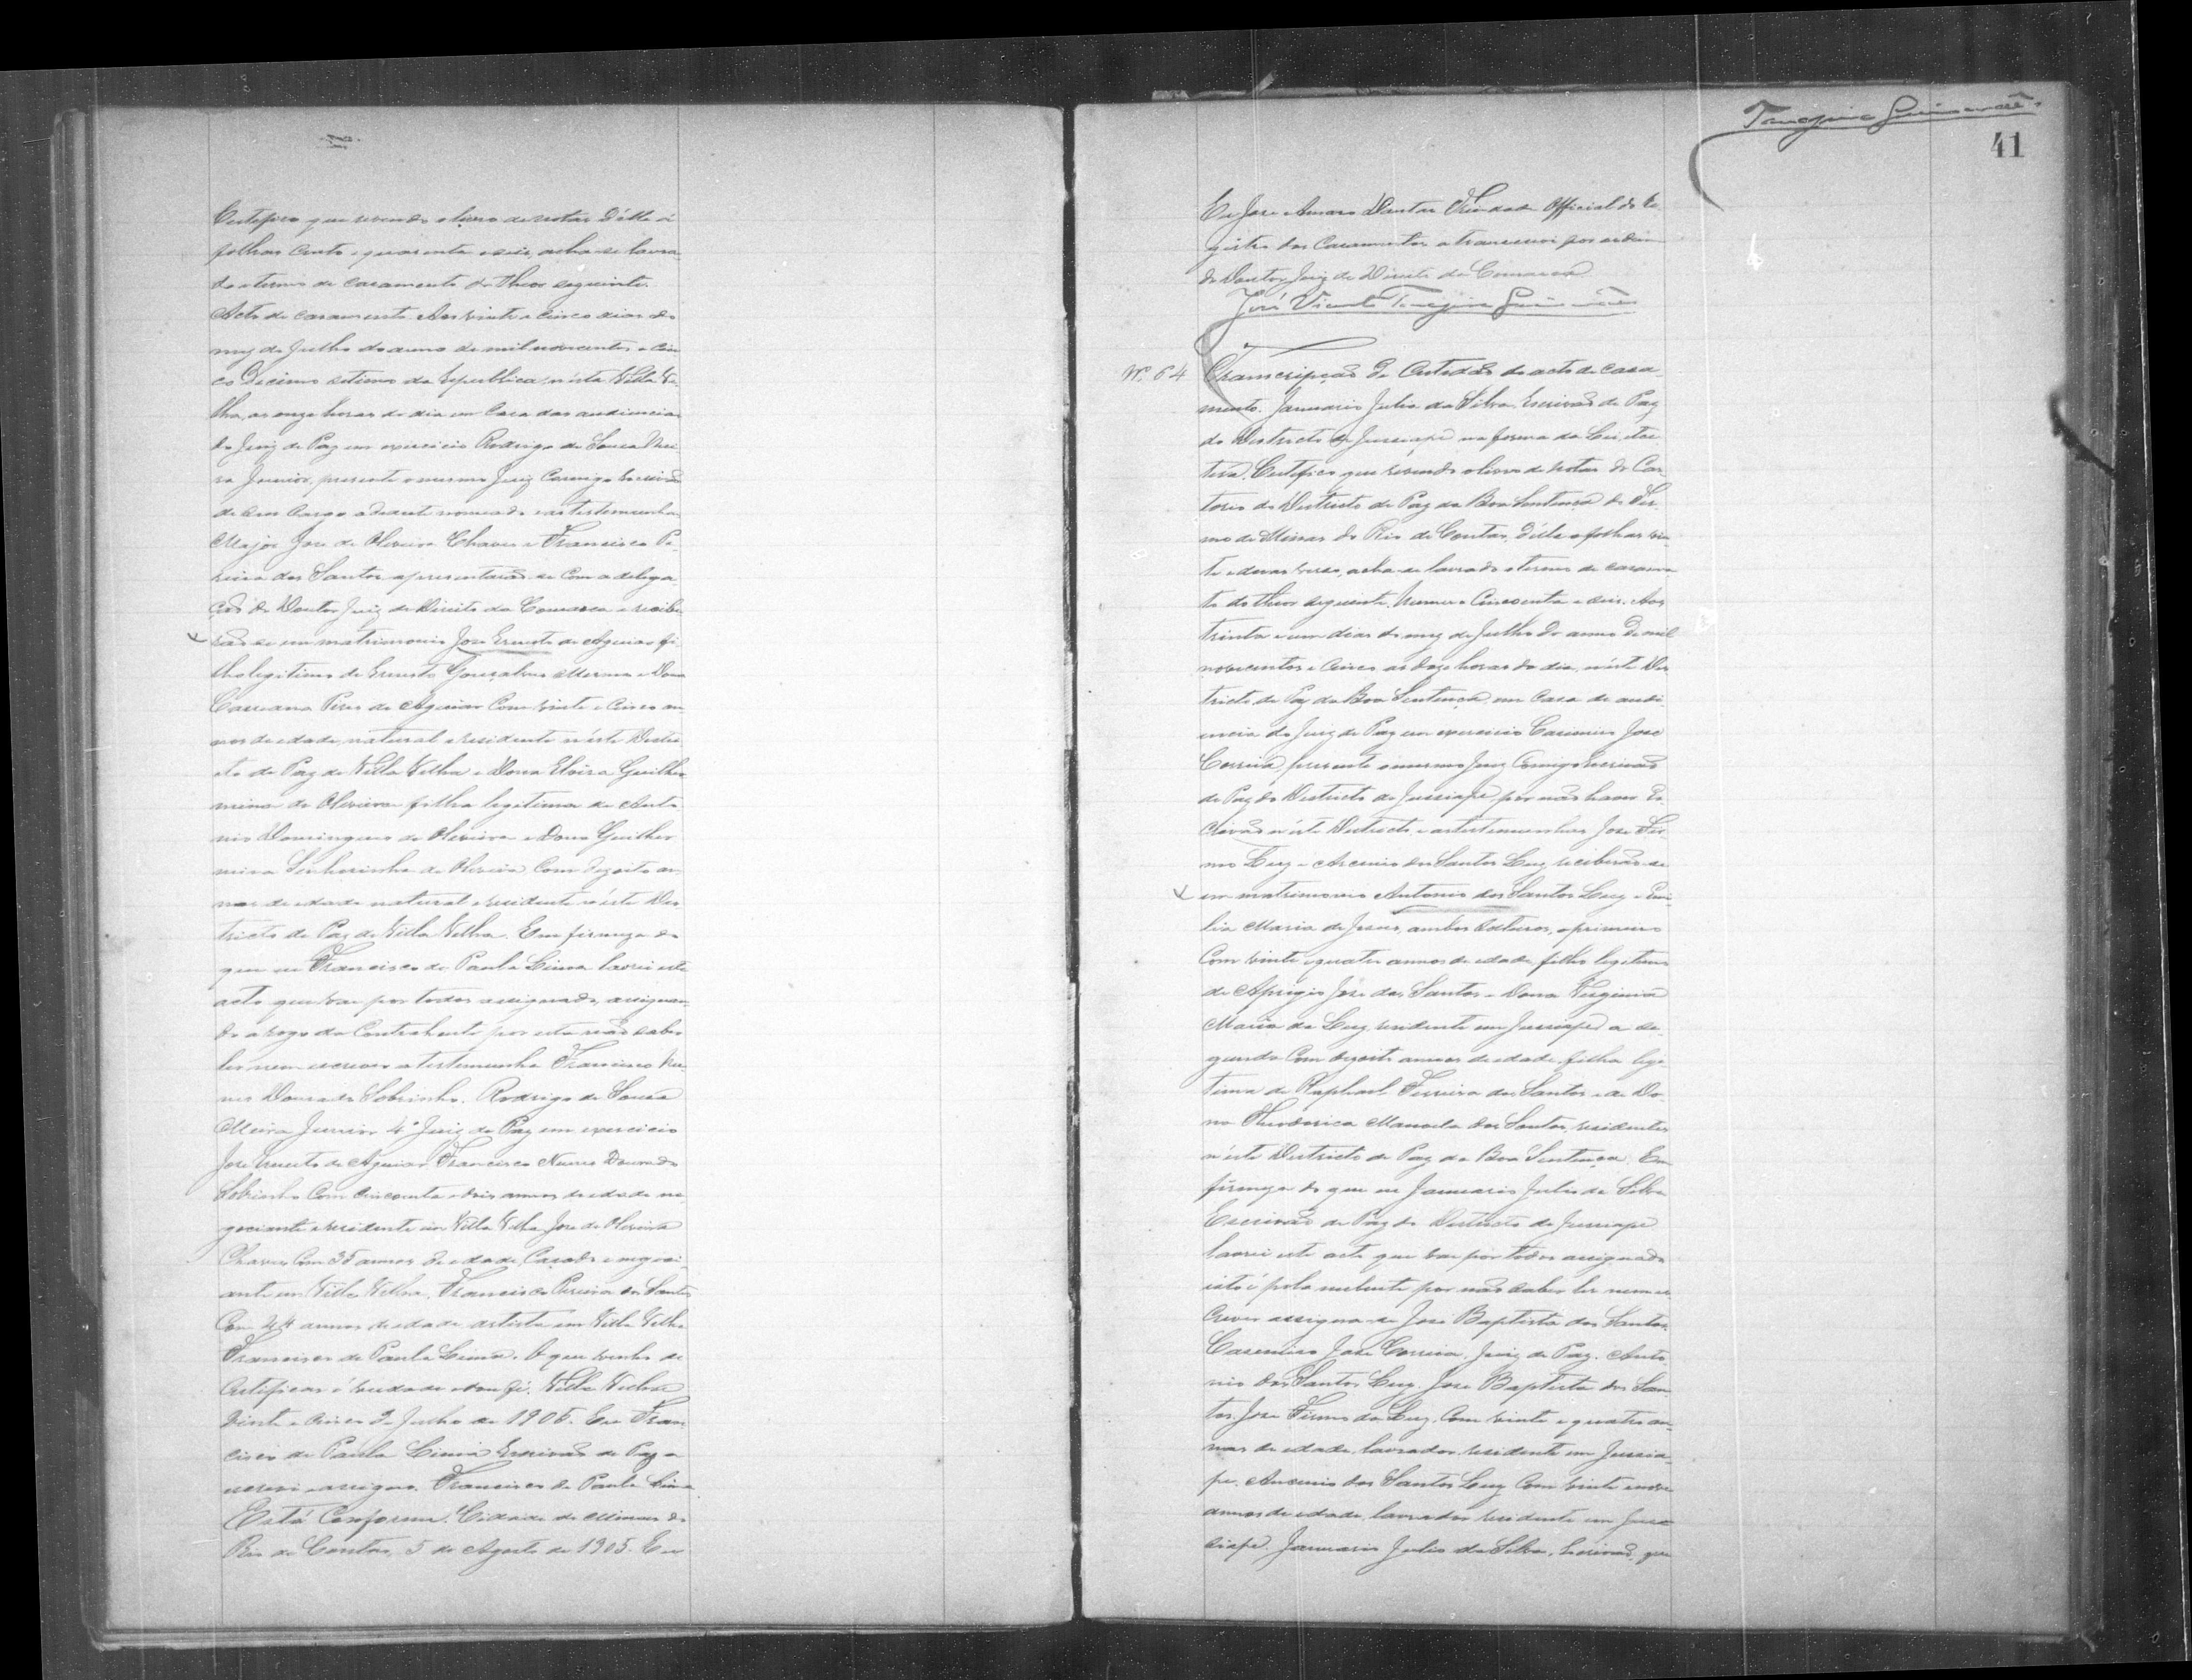 Certifico que revendo o livro de notas d'elle á
folhas cento e quarenta e seis, acha-se lavra-
do o termo de casamento do theor seguinte.
Acto de casamento. Aos vinte e cinco dias do
mez de Julho do anno de mil novecentos e cin-
co Decimo setimo da Republica, n'esta Villa Ve-
lha, as onze horas do dia em Casa das audiencias
do Juiz de Paz em exercicio Rodrigo de Souza Mei-
ra Junior, presente o mesmo Juiz Commigo Escrivão
de seu Cargo adiante nomeado e as testemunhas
Major José de Oliveira Chaves e Francisco Pe-
reira dos Santos apresentarão-se com a delega-
ção do Doutor Juiz de Direito da Comarca e recebe-
rão-se em matrimonio José Ernesto de Aguiar fi-
lho legitimo de Ernesto Gonsalves e Dona
Cassiana Pires de Aguiar Com vinte e cinco an-
nos de edade, natural e residente n'este Distri-
cto de Paz de Villa Velha e Dona Elvira Guilher-
mina de Oliveira filha legitima de Anto-
nio Domingues de Oliveira e Dona Guilher-
mina Senhorinha de Oliveira, Com dezoito an-
nos de edade natural e residente n'este Dis-
tricto de Paz de Villa Velha. Em firmeza do
que eu Francisco de Paula Lima lavrei este
acto que vae por todos assignado, assignan-
do a rogo da Contrahente por esta não saber
ler nem escrever a testemunha Francisco Nu-
nes Dourado Sobrinho. Rodrigo de Souza
Meira Junior 4º Juiz de Paz em exercicio
José Ernesto de Aguiar Francisco Nunes Dourado
Sobrinho Com cincoenta e dois annos de edade ne-
gociante e residente em Villa Velha José de Oliveira
Chaves Com 35 annos de edade, Casado e negoci-
ante em Villa Velha. Francisco Pereira dos Santos
Com 44 annos de edade artista em Villa Velha
Francisco de Paula Lima. O que venho de
Certificar é verdade e dou fé. Villa Velha
vinte e cinco de Julho de 1905. Eu Fran-
cisco de Paula Lima Escrivão de Paz o
escrevi e assigno. Francisco de Paula Lima.
Está Conforme. Cidade de Minas do
Rio de Contas, 5 de Agosto de 1905. Eu
Tanajura Guimarães
41
Eu José Amaro Dantas Official do Re-
gistro dos Casamentos a transcrevi por ordem
do Doutor Juiz de Direito da Comarca
José Vicente Tanajura Guimarães
Nº 64 Transcripção da Certidão do acto de casa-
mento. Januario Julio da Silva, Escrivão de Paz
do Districto de Jussiape na forma da Lei, etce-
tera. Certifico que revendo o livro de notas do Car-
torio do Districto de Paz da Boa Sentença do Ter-
mo de Minas do Rio de Contas, d'elle a folhas vin-
te e duas verso, acha-se lavrado o termo de casamen-
to do theor seguinte. Numero Cincoenta e seis. Aos
trinta e um dias do mez de Julho do anno de mil
novecentos e cinco as doze horas do dia, n'este Dis-
tricto de Paz da Boa Sentença em Casa de audi-
encia do Juiz de Paz em exercicio Casimiro José
Correia, presente o mesmo Juiz Comigo Escrivão
de Paz do Districto de Jussiape, por não haver Es-
crivão n'este Districto e as testemunhas José Fir-
mo Luz e Arcenio dos Santos Luz, receberão-se
em matrimonio Antonio dos Santos Luz e Emi-
lia Maria de Jesus, ambos solteiros, o primeiro
Com vinte e quatro annos de edade, filho legitimo
de Aprigio José dos Santos e Dona Virginia
Maria da Luz, residente em Jussiape a se-
gunda Com dezoito annos de edade, filha legi-
tima de Raphael Ferreira dos Santos e de Do-
na Theodorica Manoela dos Santos, residentes
n'este Districto de Paz da Boa Sentença. Em
firmeza do que eu Januario Julio da Silva
Escrivão de Paz do Districto de Jussiape
lavrei este acto que vae por todos assignado
isto é pela nubente por não saber ler nem es-
crever assigna-se José Baptista dos Santos.
Casemiro José Correia, Juiz de Paz. Anto-
nio dos Santos Luz, José Baptista dos San-
tos, José Firmo da Luz, Com vinte e quatro an-
nos de edade, lavrador, residente em Jussia-
pe. Arcenio dos Santos Luz Com vinte e nove
annos de edade, lavrador residente em Jus-
siape. Januario Julio da Silva, Escrivão, que